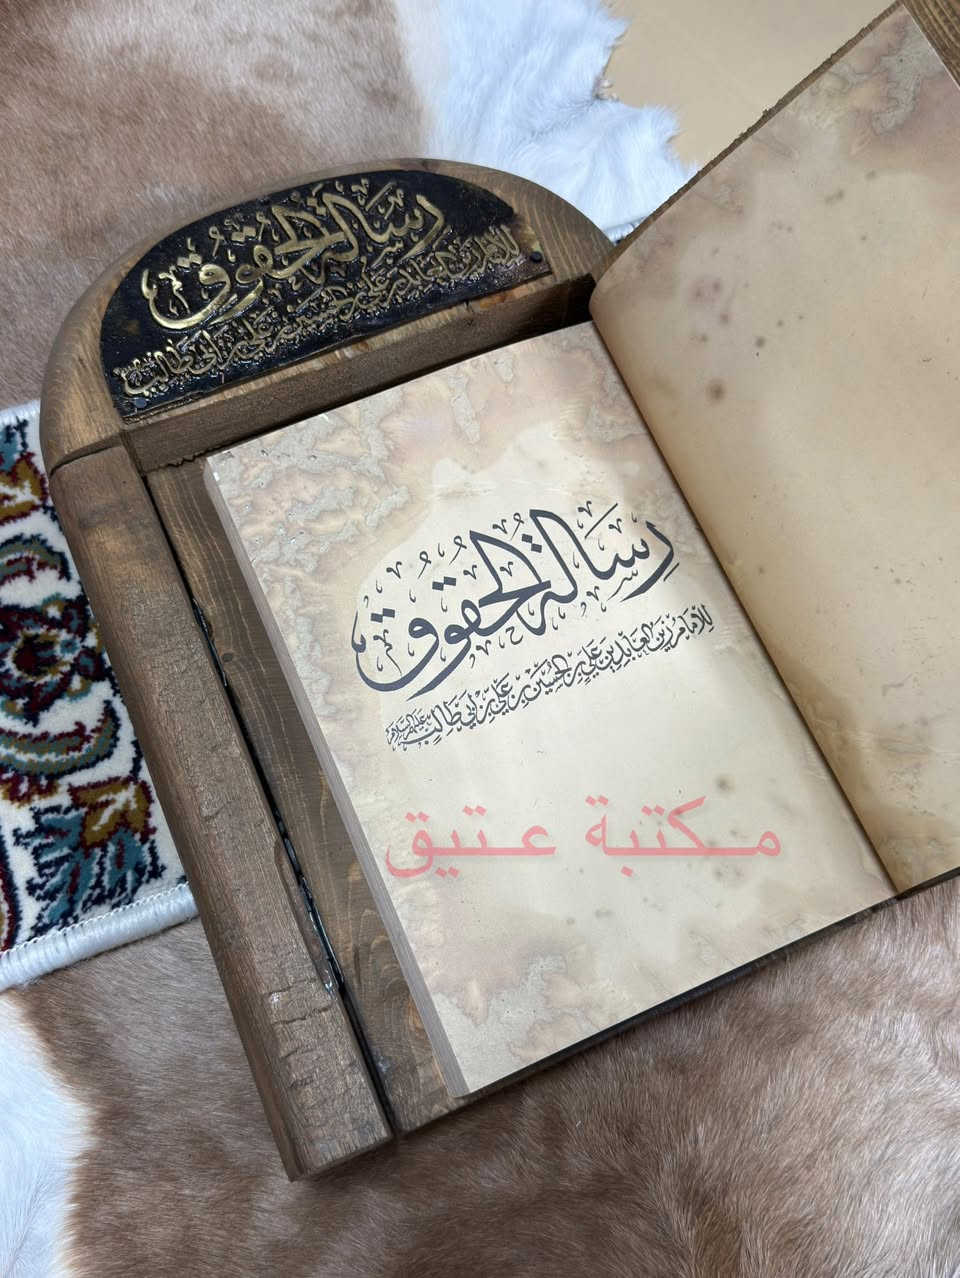 رسالة الحقوق
للإمام زين العابدين علي بن الحسين بن علي بن أبي طالب
رِسَالَةُ الحُقُوقِ
لِلإِمَامِ زَيْنِ العَابِدِينَ عَلِيِّ بْنِ الحُسَيْنِ بْنِ عَلِيِّ بْنِ أَبِي طَالِبٍ عليهم السلام
مكتبة عتيق